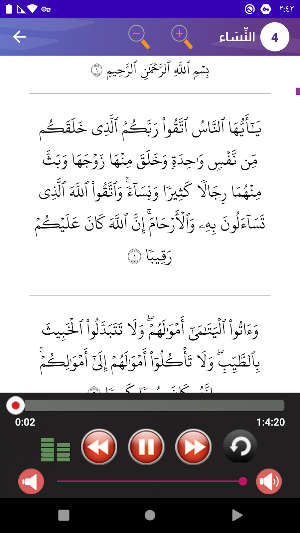 ٢:٤٢
النِّسَاء 4
بِسْمِ اللَّهِ الرَّحْمَٰنِ الرَّحِيمِ
يَٰٓأَيُّهَا ٱلنَّاسُ ٱتَّقُوا۟ رَبَّكُمُ ٱلَّذِى خَلَقَكُم
مِّن نَّفْسٍ وَٰحِدَةٍ وَخَلَقَ مِنْهَا زَوْجَهَا وَبَثَّ
مِنْهُمَا رِجَالًا كَثِيرًا وَنِسَآءً ۚ وَٱتَّقُوا۟ ٱللَّهَ ٱلَّذِى
تَسَآءَلُونَ بِهِۦ وَٱلْأَرْحَامَ ۚ إِنَّ ٱللَّهَ كَانَ عَلَيْكُمْ
رَقِيبًا ١
وَءَاتُوا۟ ٱلْيَتَٰمَىٰٓ أَمْوَٰلَهُمْ ۖ وَلَا تَتَبَدَّلُوا۟ ٱلْخَبِيثَ
بِٱلطَّيِّبِ ۖ وَلَا تَأْكُلُوٓا۟ أَمْوَٰلَهُمْ إِلَىٰٓ أَمْوَٰلِكُمْ ۚ
0:02 1:4:20